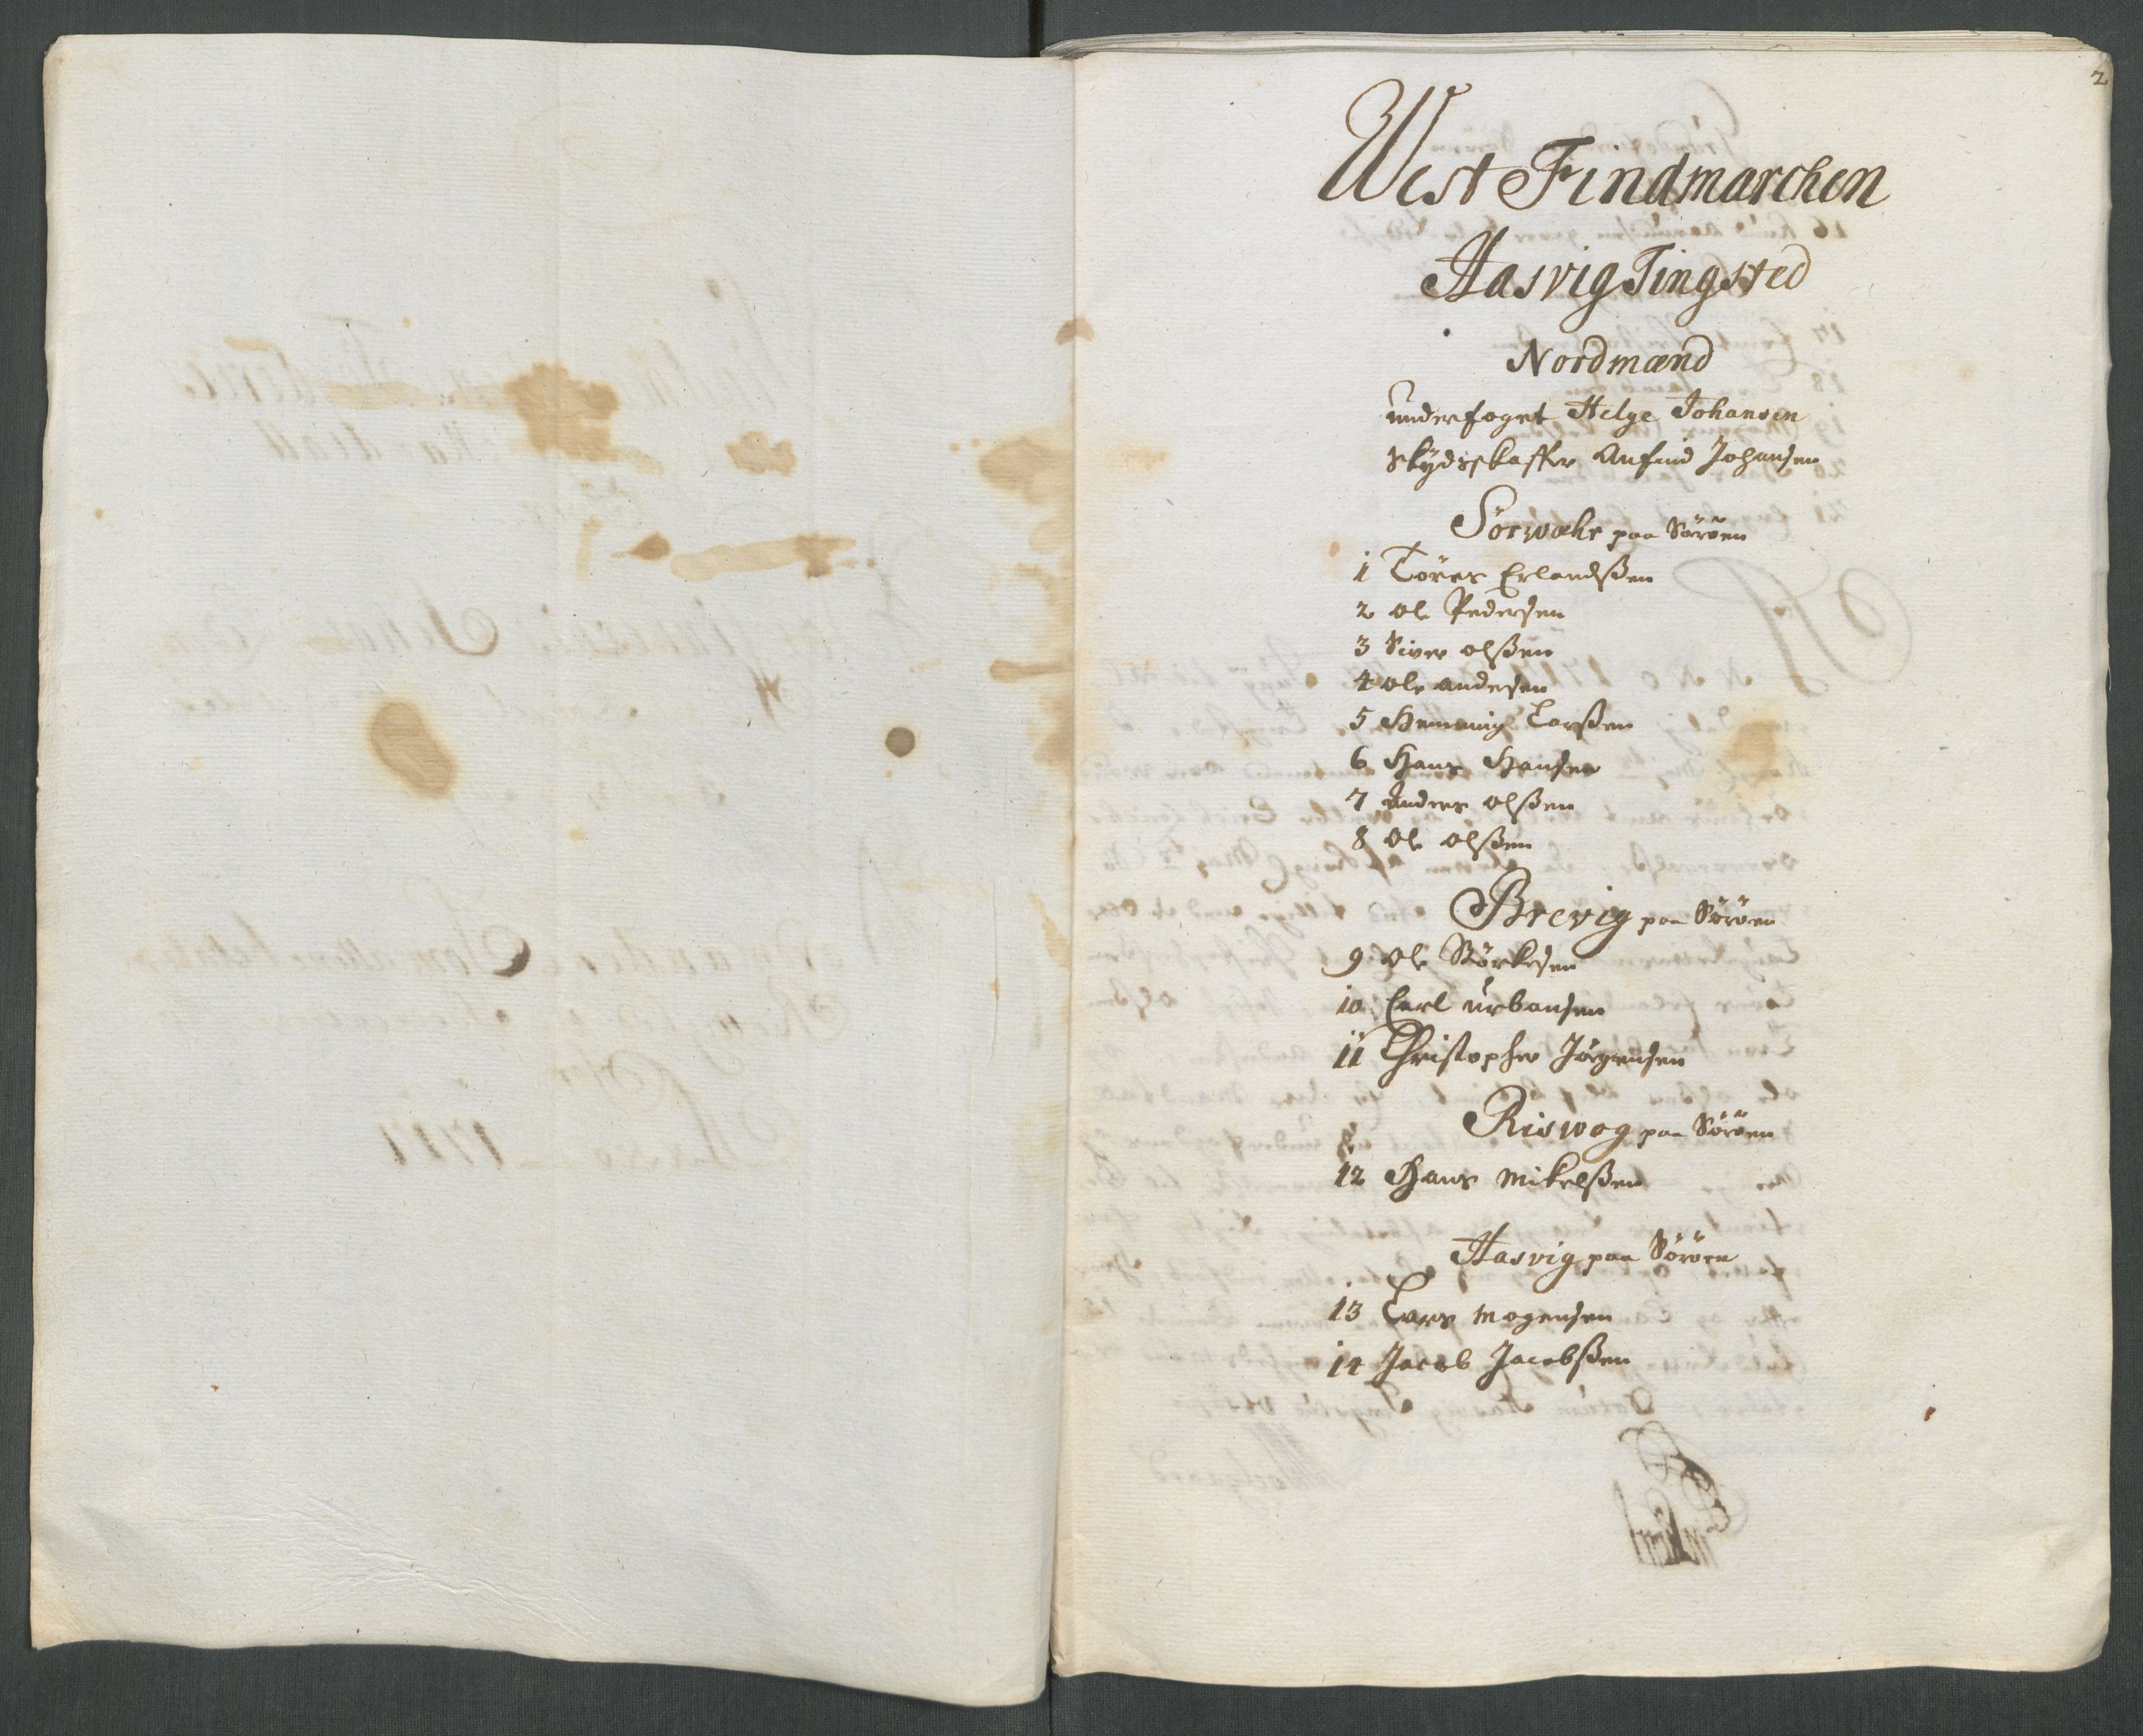 2
West Findmarchen
Hasvig Tingsted
Nordmænd
underfoget Helge Johansen
skydsskaffer Anfind Johansen
Sörwæhr paa Söröen
1 Törres Erlandsßen
2 Ole Pedersen
3 Siver olßen
4 Ole andersen
5 Henning Larßen
6 Hans Hansen
7 Anders olßen
8 Ole olßen
Brevig paa Söröen
9 Ole Störkesen
10 Carl urbansen
11 Christopher Jörgensen
Riswog paa Söröen
12 Hans Mikelßen
Hasvig paa Söröen
13 Lars Mogensen
14 Jacob Jacobßen